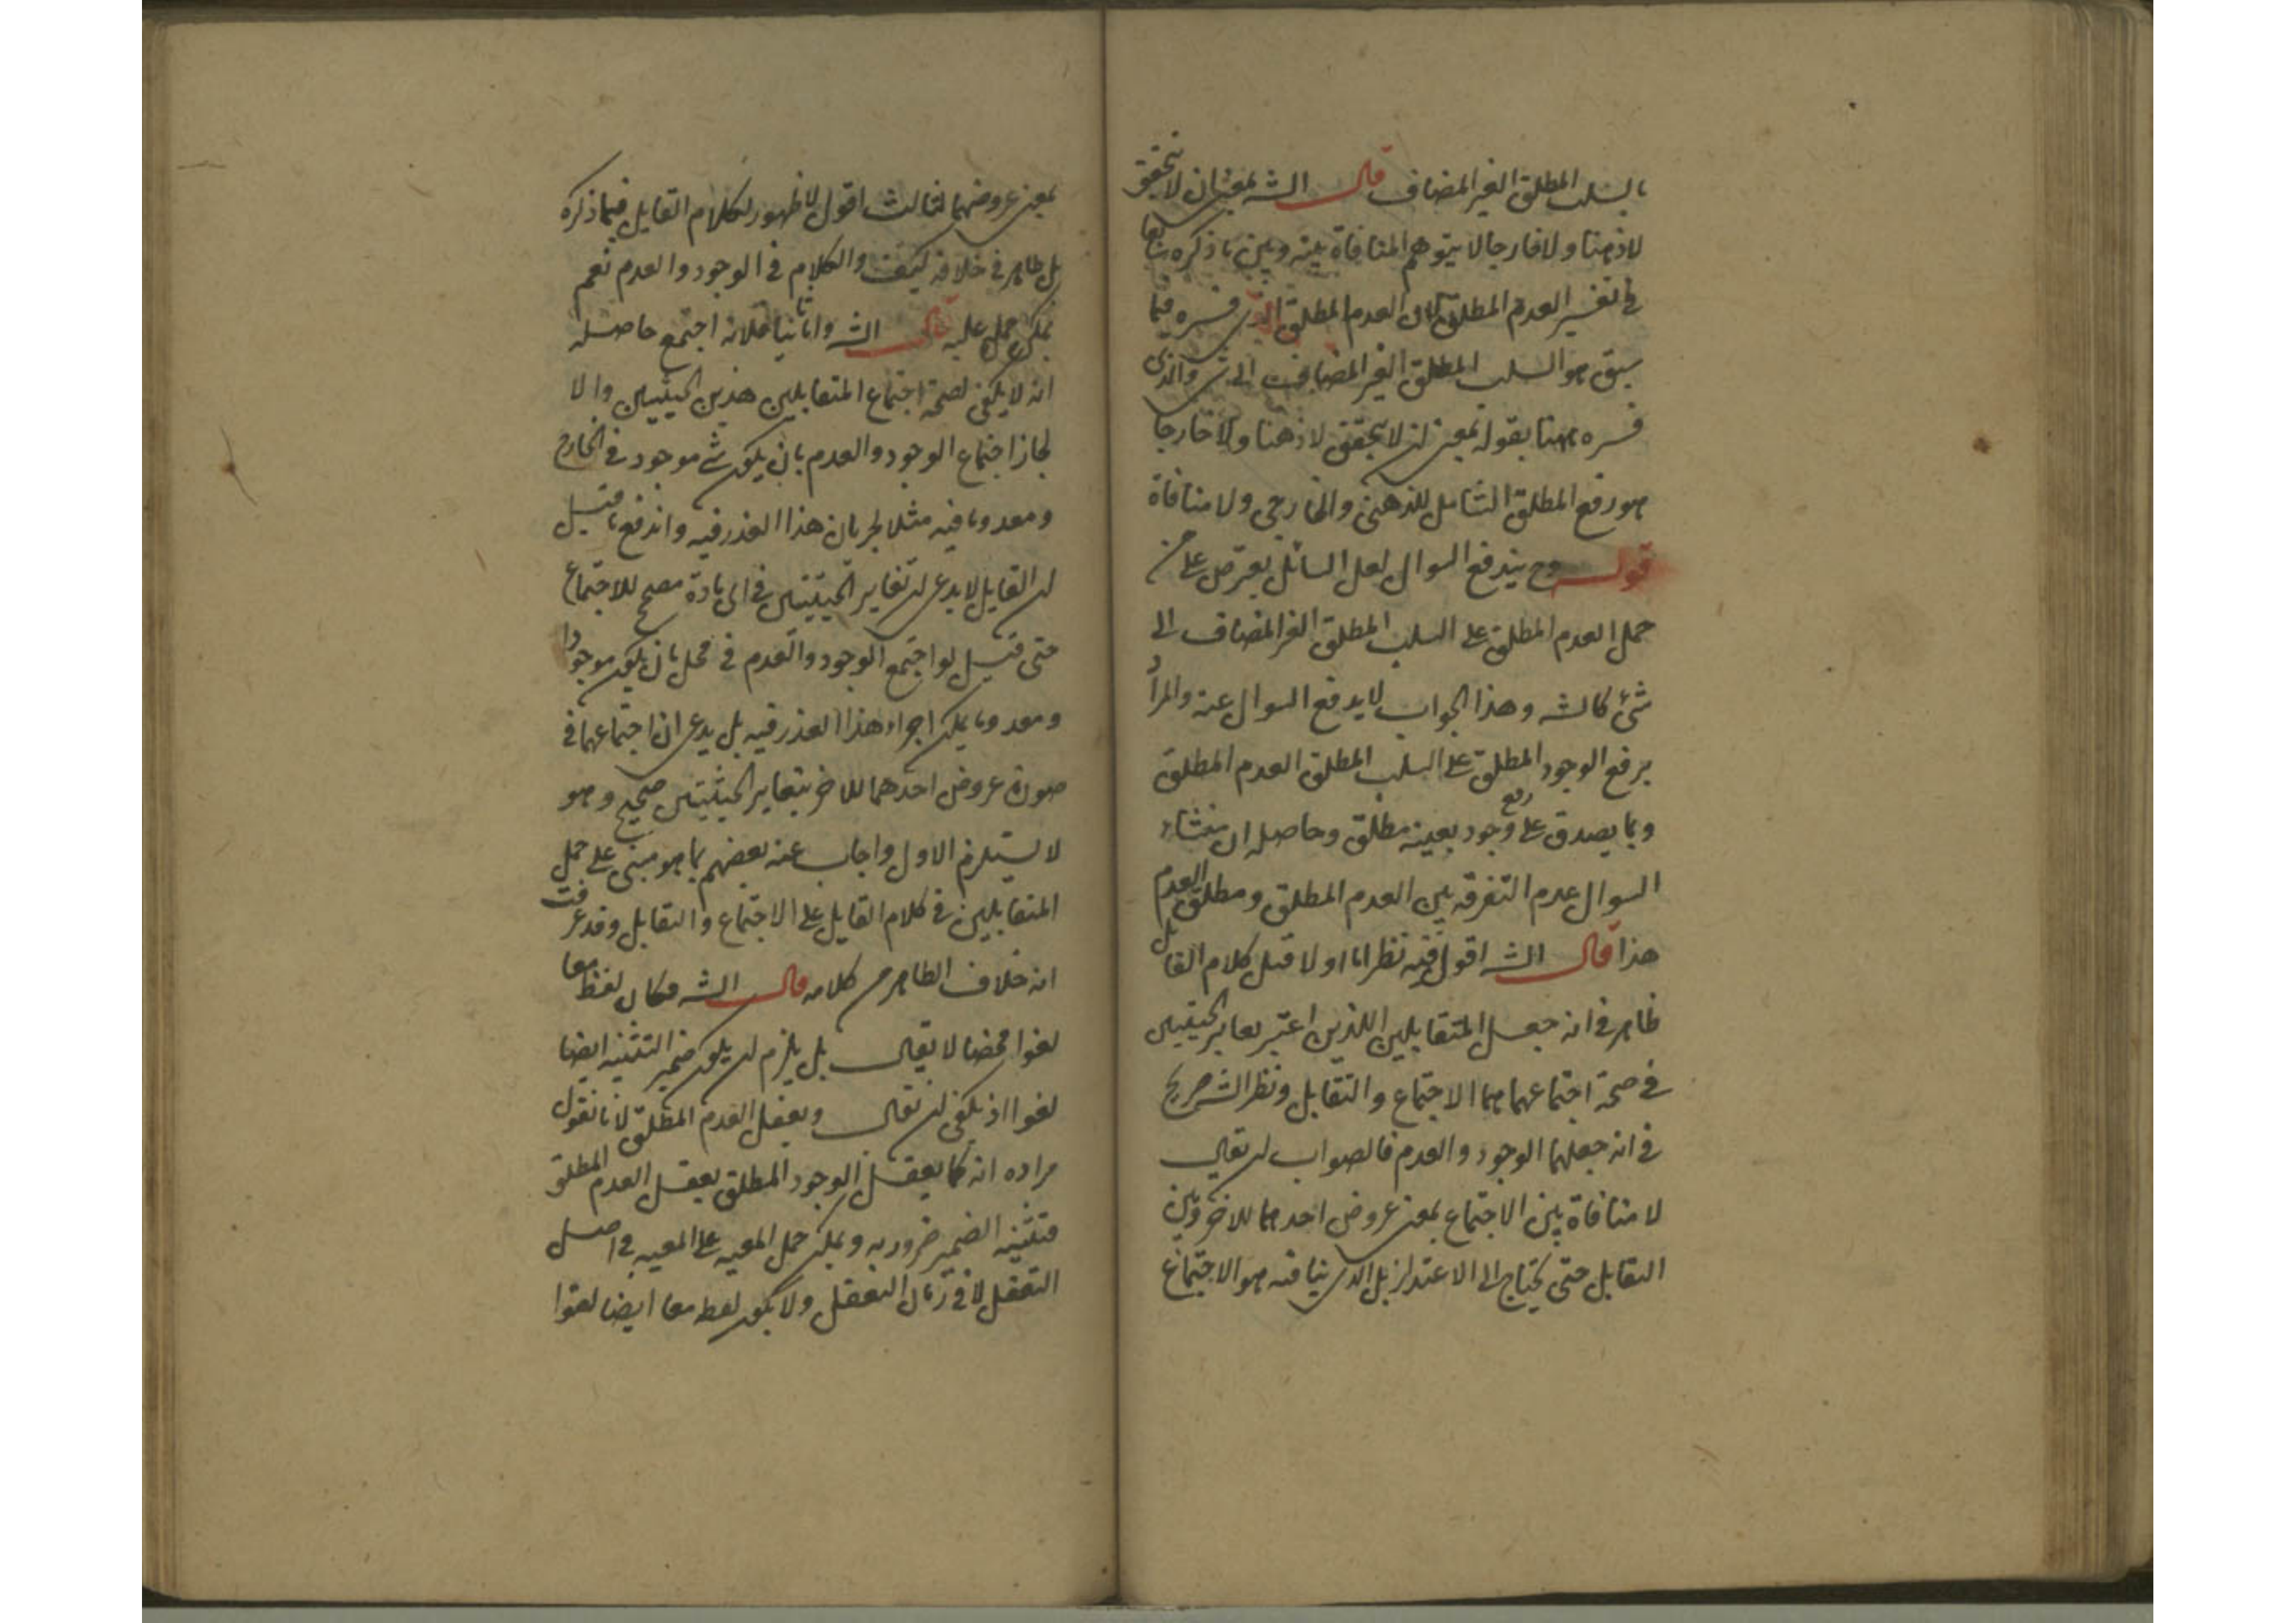 بالسلب المطلق الغير المضاف قال الشه بمعنى ان لا يتحقق
لا ذهنا ولا خارجا لا يتوهم المنافاة بينه وبين ما ذكره سابقا
في تفسير العدم المطلق لان العدم المطلق الذي فسره فيما
سبق هو السلب المطلق الغير المضاف الى شئ والذي
فسره ههنا بقوله بمعنى ان لا يتحقق لا ذهنا ولا خارجا
هو رفع المطلق الشامل للذهني والخارجي ولا منافاة
قوله وح يندفع السوال لعل السائل يعترض على من
حمل العدم المطلق على السلب المطلق الغير المضاف الى
شئ كالشه وهذا الجواب لا يدفع السوال عنه والمراد
برفع الوجود المطلق على السلب المطلق العدم المطلق
وبما يصدق على رفع وجود بعينه مطلق وحاصله ان منشاء
السوال عدم التفرقه بين العدم المطلق ومطلق العدم
هذا قال الشه اقول فيه نظر اما اولا قيل كلام القايل
ظاهر في انه جعل المتقابلين اللذين اعتبر تغاير الحيثيتين
في صحة اجتماعهما هما الاجتماع والتقابل ونظر الشه صريح
في انه جعلهما الوجود والعدم فالصواب ان يقال
لا منافاة بين الاجتماع بمعنى عروض احدهما للاخر وبين
التقابل حتى يحتاج الى الاعتذار بل الذي ينافيه هو الاجتماع
بمعنى عروضهما لثالث اقول لا ظهور لكلام القايل فيما ذكره
بل ظاهر في خلافه كيف والكلام في الوجود والعدم نعم
يمكن حمله عليه قال الشه واما ثانيا فلانه اجتمع حاصله
انه لا يكفي لصحة اجتماع المتقابلين هذين الحيثيتين والا
لجاز اجتماع الوجود والعدم بان يكون شئ موجود في الخارج
ومعدوما فيه مثلا لجريان هذا العذر فيه واندفع ما قيل
ان القايل لا يدعى ان تغاير الحيثيتين في اى مادة مصحح للاجتماع
حتى قيل لو اجتمع الوجود والعدم في محل بان يكون موجودا
ومعدوما يمكن اجراء هذا العذر فيه بل يدعى ان اجتماعهما في
صورة عروض احدهما للاخر بتغاير الحيثيتين صحيح وهو
لا يستلزم الاول واجاب عنه بعضهم بما هو مبنى على حمل
المتقابلين في كلام القايل على الاجتماع والتقابل وقد عرفت
انه خلاف الظاهر من كلامه قال الشه فكان لفظ معا
لغوا محضا لا يقال بل يلزم ان يكون ضمير التثنيه ايضا
لغوا اذ يكفى ان يقال ويعقل العدم المطلق لانا نقول
مراده انه كما يعقل الوجود المطلق يعقل العدم المطلق
فتثنيه الضمير ضروريه ويمكن حمل المعيه على المعيه في اصل
التعقل لا في زمان التعقل ولا يكون لفظ معا ايضا لغوا